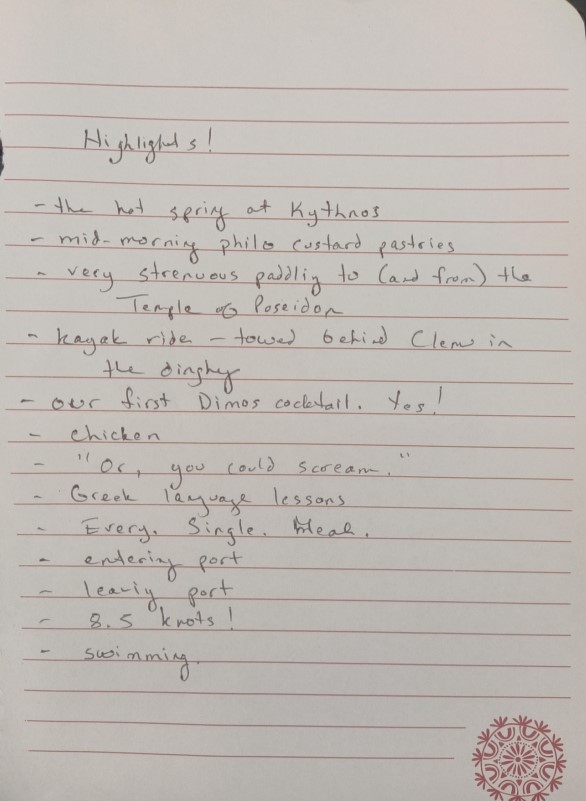 Highlights!
- the hot spring at Kythnos
- mid-morning philo custard pastries
- very strenuous paddling to (and from) the
Temple of Poseidon
- kayak ride - towed behind Clem in
the dinghy
- our first Dimos cocktail. Yes!
- chicken
- "Or, you could scream."
- Greek language lessons
- Every. Single. Meal.
- entering port
- leaving port
- 8.5 knots!
- swimming.